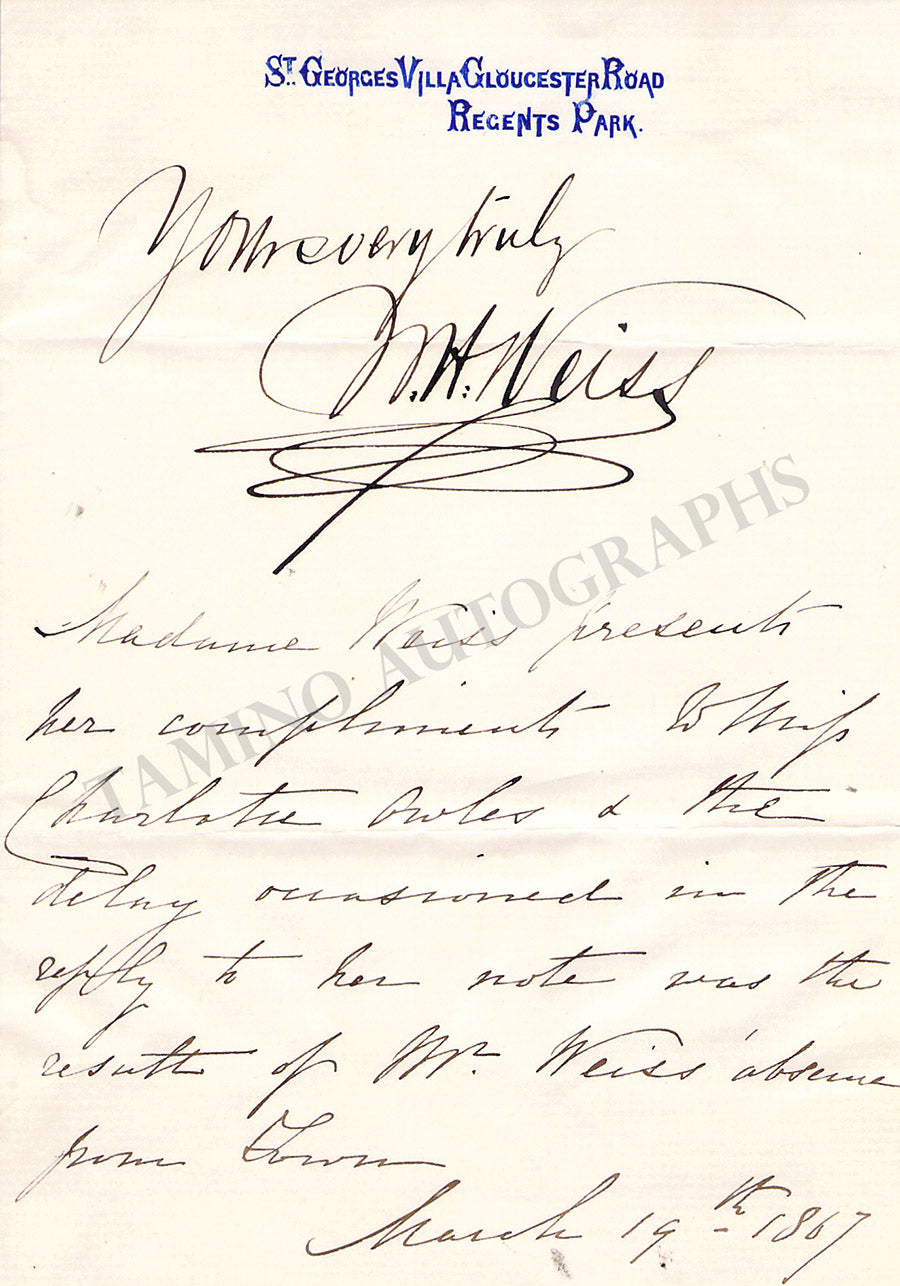 ST. GEORGES VILLA GLOUCESTER ROAD
REGENTS PARK.
Yours very truly
W. H. Weiss
TAMINO AUTOGRAPHS
Madame Weiss presents
her compliments to Miss
Charlotte Owles & the
delay occasioned in the
reply to her note was the
result of Mr. Weiss' absence
from Town
March 19th 1867